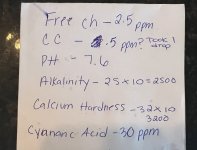 Free ch - 2.5 ppm
CC - .5 ppm? TOOK 1 drop
PH - 7.6
Alkalinity - 25 x 10 = 2500
Calcium Hardness - 32 x 10
3200
Cyananic Acid - 30 ppm